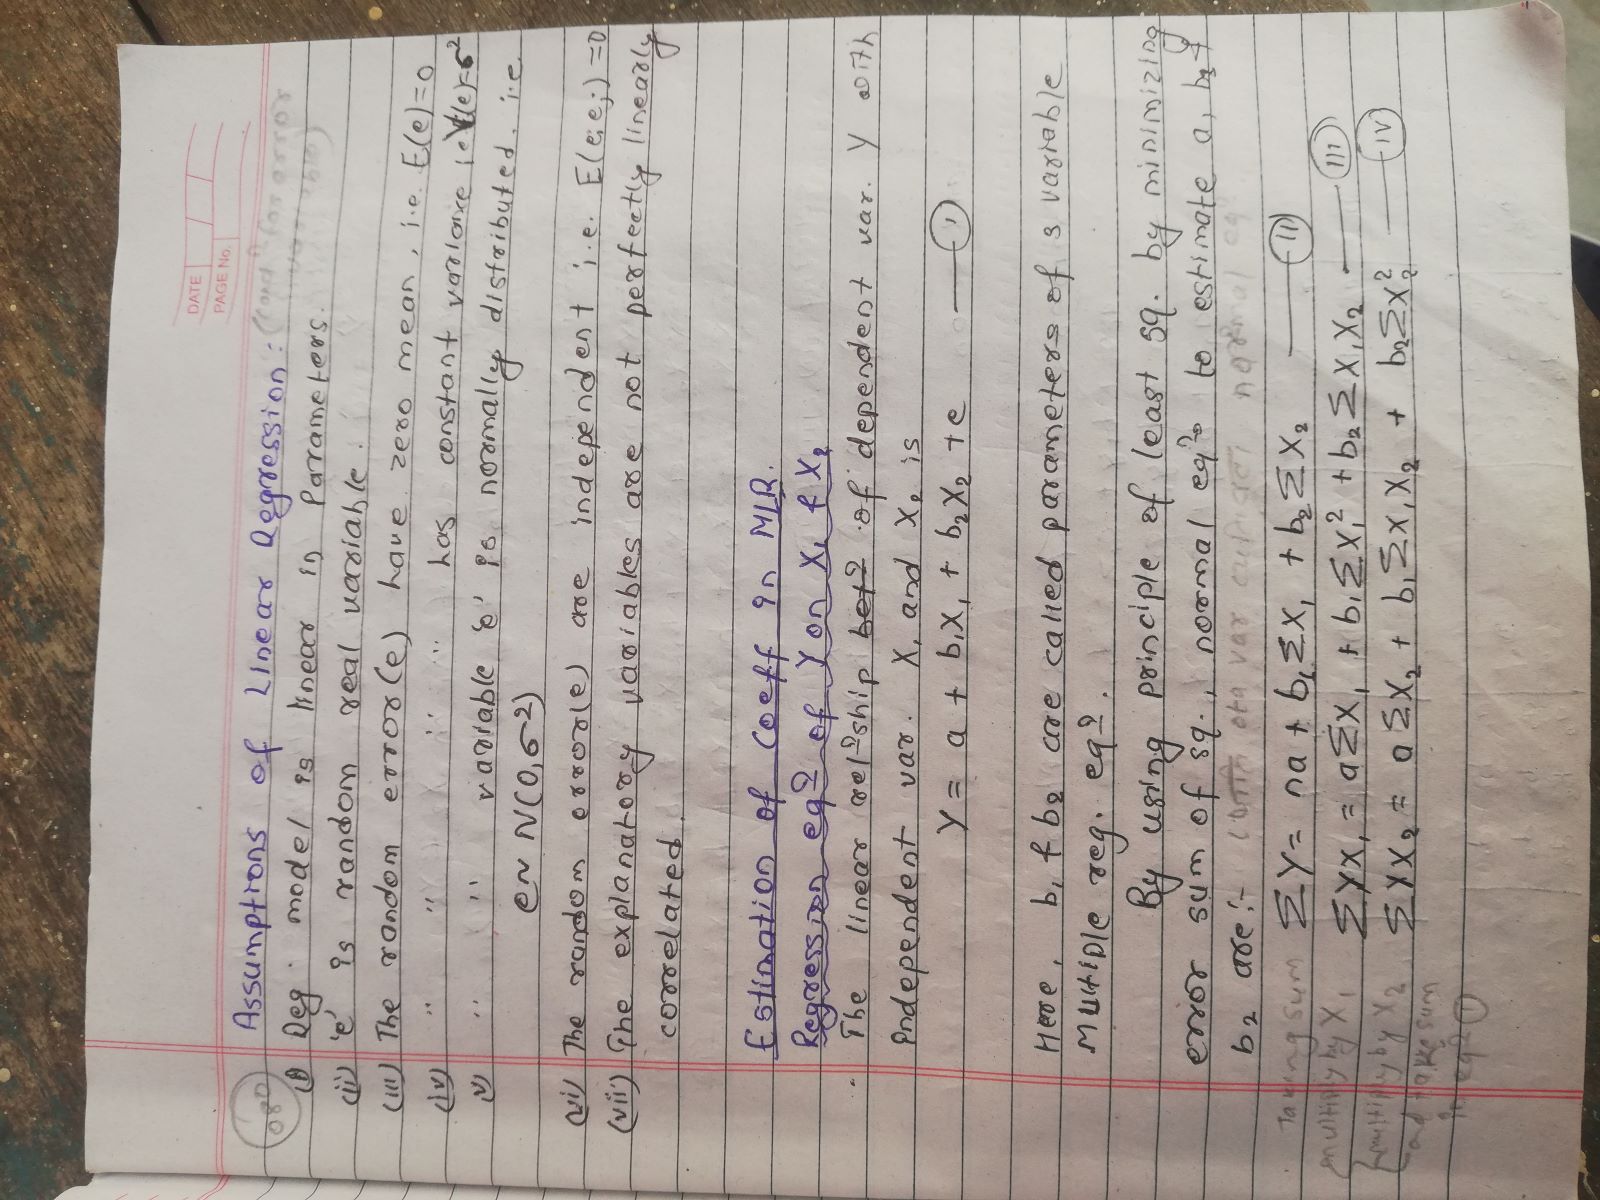 DATE
PAGE No.
080
Assumptions of Linear Regression: (cond? for error variable)
(i) Reg. model is linear in Parameters.
(ii) 'e' is random real variable.
(iii) The random error(e) have zero mean, i.e. E(e)=0
(iv) " " " " has constant variance i.e V(e)=σ²
(v) " " variable 'e' is normally distributed. i.e.
e~N(0,σ²)
(vi) The random error(e) are independent i.e. E(eiej)=0
(vii) The explanatory variables are not perfectly linearly
correlated.
Estimation of Coeff in MLR.
Regression eqⁿ of Y on X₁ & X₂
The linear relⁿship betⁿ of dependent var. Y with
independent var. X₁ and X₂ is
Y = a + b₁X₁ + b₂X₂ + e —— (I)
Here, b₁ & b₂ are called parameters of 3 variable
Multiple reg. eqⁿ.
By using principle of least sq. by minimizing
error sum of sq., normal eqⁿs to estimate a, b₁ &
b₂ are:- normal eqⁿ
Taking sum ΣY = na + b₁ΣX₁ + b₂ΣX₂ —— (II)
multiply by X₁ ΣYX₁ = aΣX₁ + b₁ΣX₁² + b₂ΣX₁X₂ —— (III)
multiply by X₂ ΣYX₂ = aΣX₂ + b₁ΣX₁X₂ + b₂ΣX₂² —— (IV)
and take sum
in eqⁿ (I)